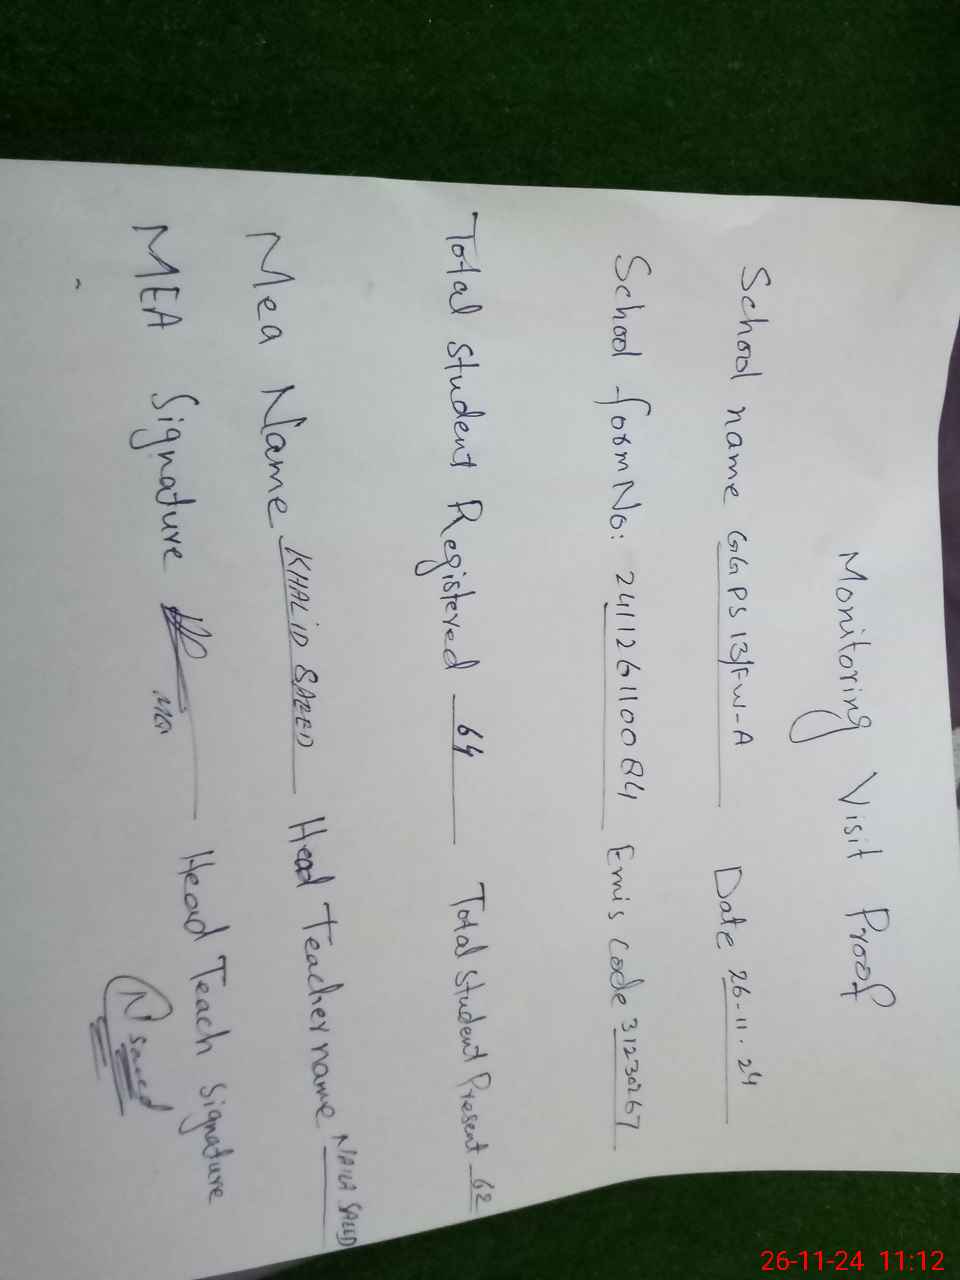 Monitoring Visit Proof
School name GGPS 13/FW-A Date 26-11-24
School form No: 241126110084 Emis code 31230267
Total Student Registered 64 Total Student Present 62
Mea Name KHALID SAEED Head Teacher name NAILA SAEED
MEA Signature Head Teach Signature
MEA
N saeed
26-11-24 11:12